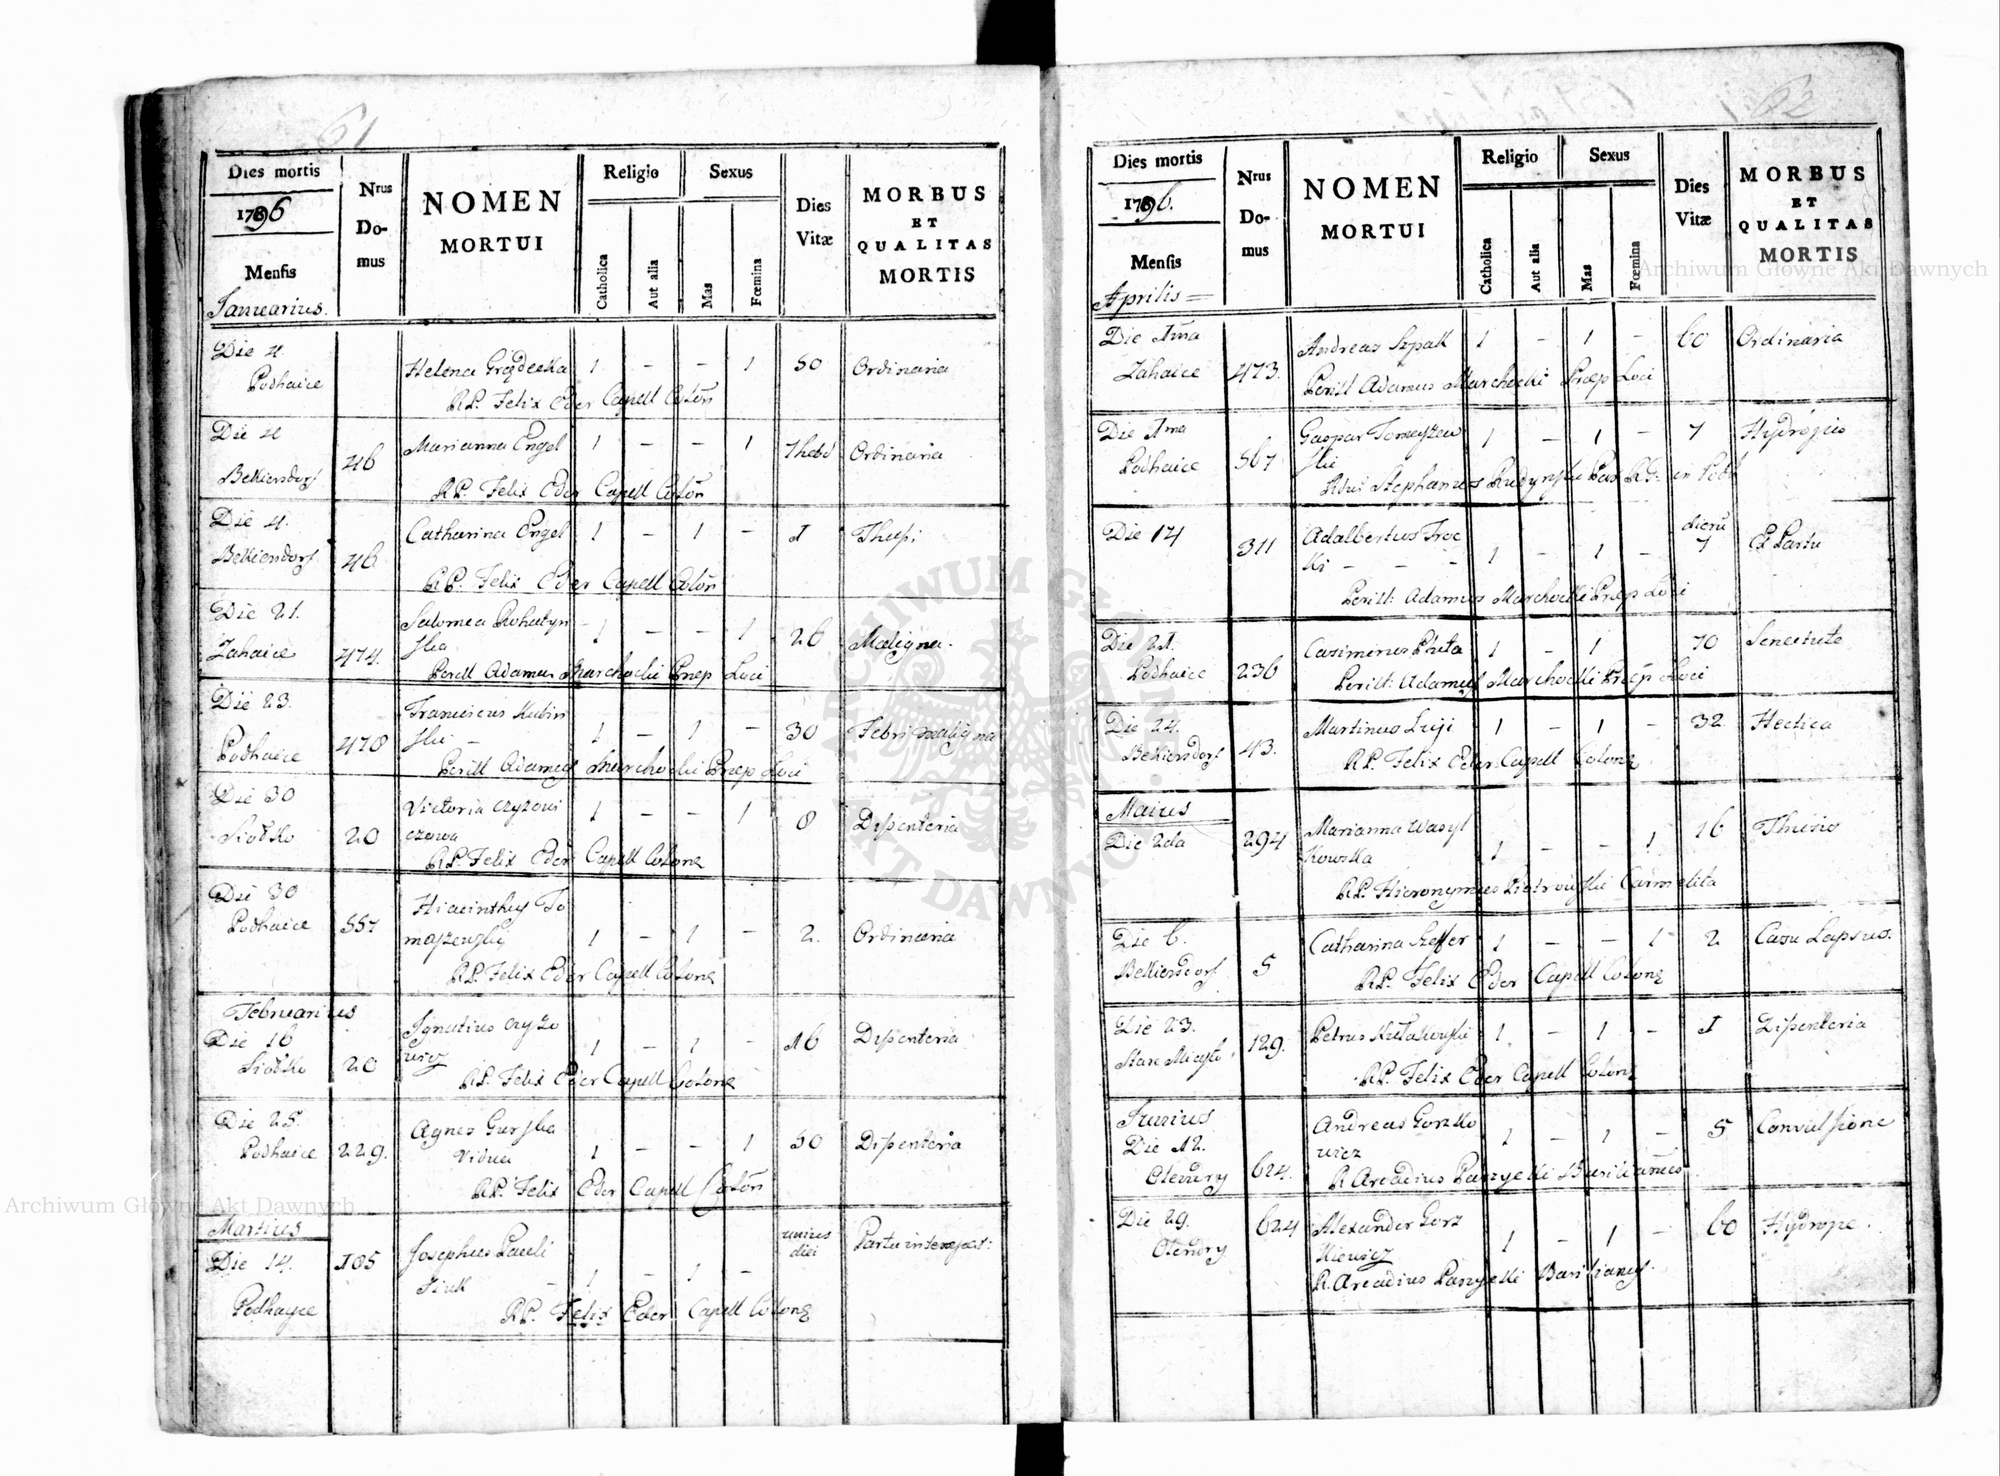 61
Dies mortis
1796
Mensis
Januarius.
Nrus
Do-
mus
NOMEN
MORTUI
Religio
Catholica
Aut alia
Sexus
Mas
Fœmina
Dies
Vitæ
MORBUS
ET
QUALITAS
MORTIS
Die 4
Podhaice
Helena Grądecka 1 – – 1 50 Ordinaria
RP. Felix Eder Capell Colōn
Die 4
Bekiersdorf 46
Marianna Engel 1 – – 1 Ordinaria
RP. Felix Eder Capell Colōn
Die 4.
Bekiersdorf 46
Catharina Engel 1 – 1 – 1
RP. Felix Eder Capell Colōn
Die 21.
Zahaice 474.
Salomea Rohatyn
ska 1 – – 1 26 Maligna.
Perill Adamus Marchocki Præp Loci
Die 23.
Podhaice 478
Franciscus Kubin
ski – 1 – 1 – 30 Febri maligna
Perill Adamus Marchocki Præp Loci
Die 30
Siołko 20
Victoria Czyzowi
czowa 1 – – 1 8 Dissenteria
RP. Felix Eder Capell Colonæ
Die 30
Podhaice 557
Hiacinthus To
maszewski 1 – 1 – 2. Ordinaria
RP. Felix Eder Capell Colonæ
Februarius
Die 16
Siołko 20
Ignatius Czyzo
wicz 1 – 1 – 16 Dissenteria
RP. Felix Eder Capell Colonæ
Die 25.
Podhaice 229.
Agnes Gurska
Vidua 1 – – 1 50 Dissenteria
RP. Felix Eder Capell Colōn
Martius
Die 14. 105
Podhayce
Josephus Pauli
– 1 – 1 – unius
diei Partu
RP. Felix Eder Capell Colonæ
62
Dies mortis
1796.
Mensis
Aprilis =
Nrus
Do-
mus
NOMEN
MORTUI
Religio
Catholica
Aut alia
Sexus
Mas
Fœmina
Dies
Vitæ
MORBUS
ET
QUALITAS
MORTIS
Die 1ma
Zahaice 473.
Andreas Szpak 1 – 1 – 60 Ordinaria
Perill Adamus Marchocki Præp Loci
Die 1ma
Podhaice 567
Gaspar
ski 1 – 1 – 7
Stephanus
Die 14 311
Adalbertus Troc
ki – – – 1 – 1 – dierū
7 Ex Partu
Perill: Adamus Marchocki Præp Loci
Die 21.
Podhaice 236
Casimirus 1 – 1 70 Senectute
Perill: Adamus Marchocki Præp Loci
Die 24.
Bekiersdorf 43.
Martinus 1 – 1 – 32. Hectica
RP. Felix Eder Capell Colonæ
Maius
Die 2da 294
Marianna Wasyl
kowska 1 – – 1 16
RP. Hieronymus Piotrowski Carmelita
Die 6.
Bekiersdorf 5
Catharina Szeffer 1 – – 1 2 Casu Lapsus.
RP. Felix Eder Capell Colonæ
Die 23.
Stare Miasto 129.
Petrus Kułakowski 1 – 1 – 1 Dissenteria
RP. Felix Eder Capell Colonæ
Junius
Die 12.
624.
Andreas Gorzko
wicz 1 – 1 – 5 Convulsione
R. Arcadius Basilianus
Die 29. 624
Alexander Gorz
kiewicz 1 – 1 – 60 Hydrope.
R. Arcadius Basilianus.
ARCHIWUM GŁÓWNE AKT DAWNYCH
Archiwum Główne Akt Dawnych
Archiwum Główne Akt Dawnych